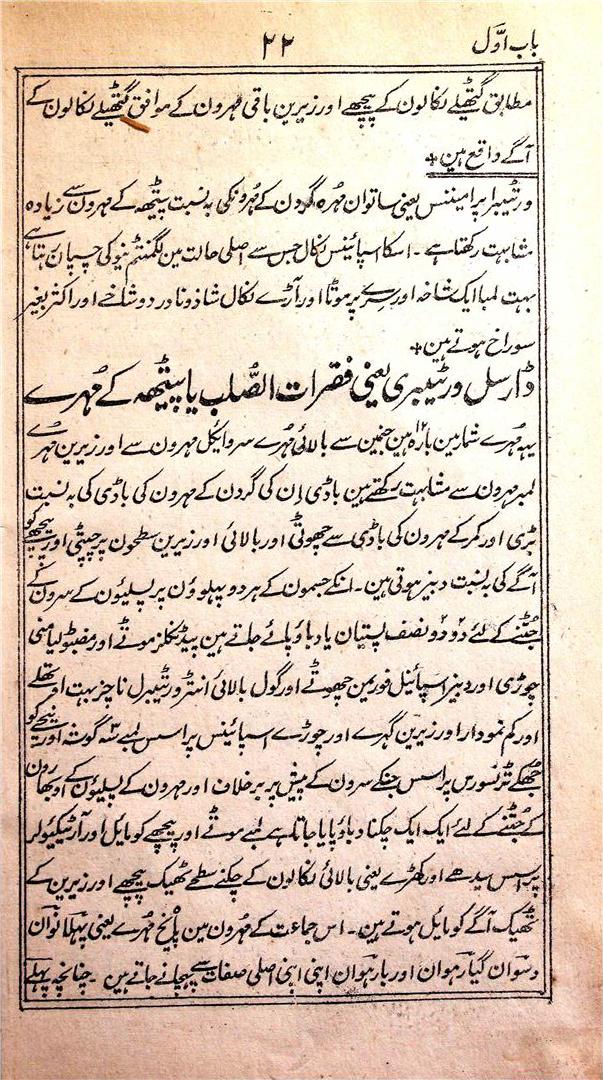 باب اوّل
۲۲
مطابق گٹھیلے نکالون کے پیچھے اور زیرین باقی مہرون کے موافق گٹھیلے نکالون کے
آگے واقع ہین +
ورٹیبرا پرامیننس یعنی ساتوان مہرہ گردن کے مہرونکی بہ نسبت پیٹھہ کے مہرون سے زیادہ
مشابہت رکھتا ہے ۔ اسکا اسپائینس نکال جس سے اصلی حالت مین لگمنٹم نیوکی چسپان رہتا ہے
بہت لمبا ایک شاخہ اور سرے پر موٹا اور آڑے نکال شاذ و نادر دو شاخے اور اکثر بغیر
سوراخ ہوتے ہین +
ڈارسل ورٹیبری یعنی فقرات الصُّلب یا پیٹھہ کے مُہرے
یہہ مُہرے شمار مین بارہ ہین جنمین سے بالائی مُہرے سروایکل مہرون سے اور زیرین مہرے
لمبر مہرون سے مشابہت رکھتے ہین باڈی اِن کی گردن کے مہرون کی باڈی کی بہ نسبت
بڑی اور کمر کے مہرون کی باڈی سے چھوٹی اور بالائی اور زیرین سطحون پر چپٹی اور پیچھے کو
آگے کی بہ نسبت دبیز ہوتی ہین ۔ انکے جسمون کے ہر دو پہلوؤن پر پسلیؤن کے سرون کے
جُٹنے کے لئے دو دو نصف پستان یا دباؤ پائے جاتے ہین پیڈنکلز موٹے اور مضبوط لیامنی
چوڑی اور دبیز اسپائینل فوریمن چھوٹے اور گول بالائی انٹرورٹیبرل ناچز بہت اوتھلے
اور کم نمودار اور زیرین گہرے اور چوڑے اسپائینس پراسس لمبے سہ گوشہ اور نیچے کو
جُھکے ٹرنسورس پراسس جنکے سرون کے پیش پر برخلاف اور مہرون کے پسلیؤن کے اوبھارون
کے جُٹنے کے لئے ایک ایک چکنا دباؤ پایا جاتا ہے لمبے موٹے اور پیچھے کو مایل اور آرٹیکیولر
پراسس سیدھے اور کھڑے یعنی بالائی نکالون کے چکنے سطحے ٹھیک پیچھے اور زیرین کے
ٹھیک آگے کو مایل ہوتے ہین ۔ اس جماعت کے مہرون مین پانچ مہرے یعنی پہلا نوآن
دسوان گیارہوان اور بارہوان اپنی اپنی اصلی صفات سے پہچانے جاتے ہین ۔ چنانچہ پہلے